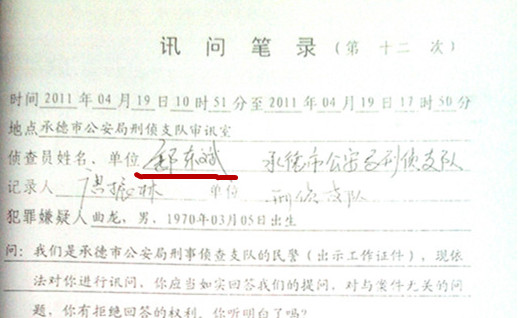 讯问笔录(第十二次)
时间2011年04月19日10时51分至2011年04月19日17时50分
地点承德市公安局刑侦支队审讯室
侦查员姓名、单位 东斌 承德市公安局刑侦支队
记录人 振林 单位 刑侦支队
犯罪嫌疑人曲龙,男,1970年03月05日出生
问:我们是承德市公安局刑事侦查支队的民警(出示工作证件),现依
法对你进行讯问,你应当如实回答我们的提问,对与案件无关的问
题,你有拒绝回答的权利。你听明白了吗?